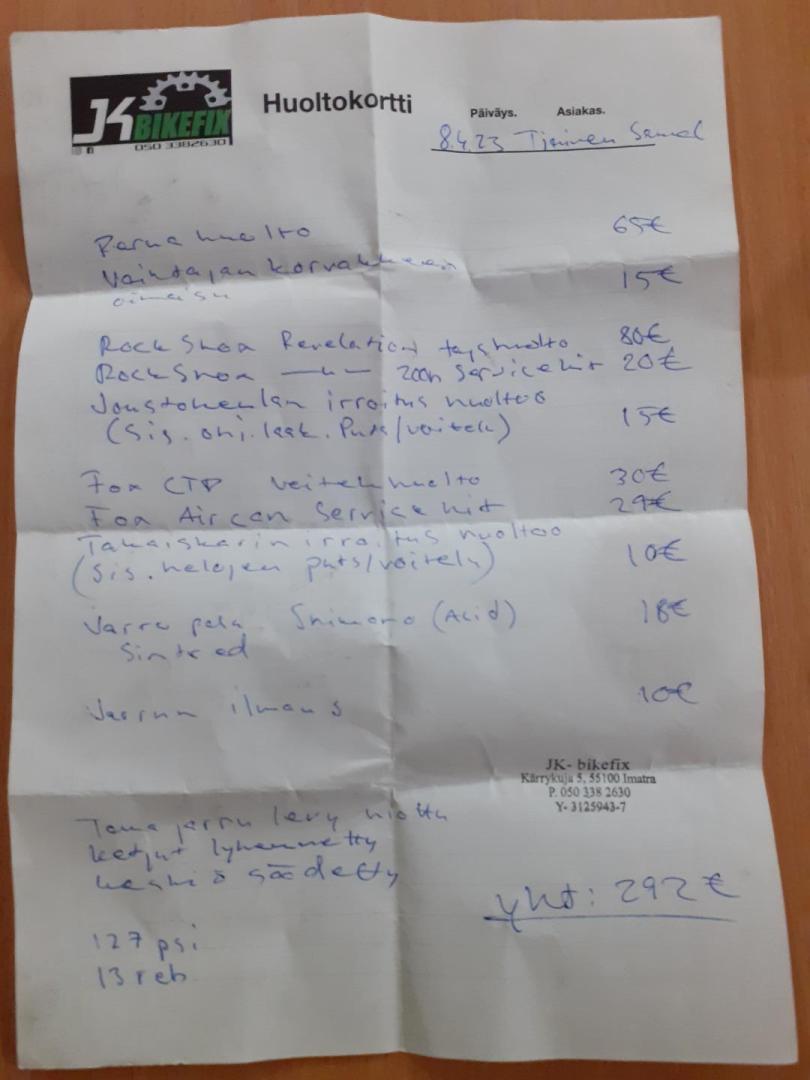 JK BIKEFIX
050 3382630
Huoltokortti
Päiväys. Asiakas.
8.4.23
Perus huolto 65€
Vaihtajan korvakkeen 15€
oikaisu
RockShox Revelation täyshuolto 80€
RockShox —"— 200h Servicekit 20€
Joustohaarukan irroitus huoltoo
(Sis. ohj. laak. Puts/voitelu) 15€
Fox CTD voiteluhuolto 30€
Fox Aircan Service kit 29€
Takaiskarin irroitus huoltoo
(Sis. helojen puts/voitelu) 10€
Jarru pala Shimano (Acid) 18€
Sintred
Jarrun ilmaus 10€
JK- bikefix
Kärrykuja 5, 55100 Imatra
P. 050 338 2630
Y- 3125943-7
Taka jarru levy hiottu
ketjut lyhennetty
keskiö säädetty
yht: 292€
127 psi
13 reb